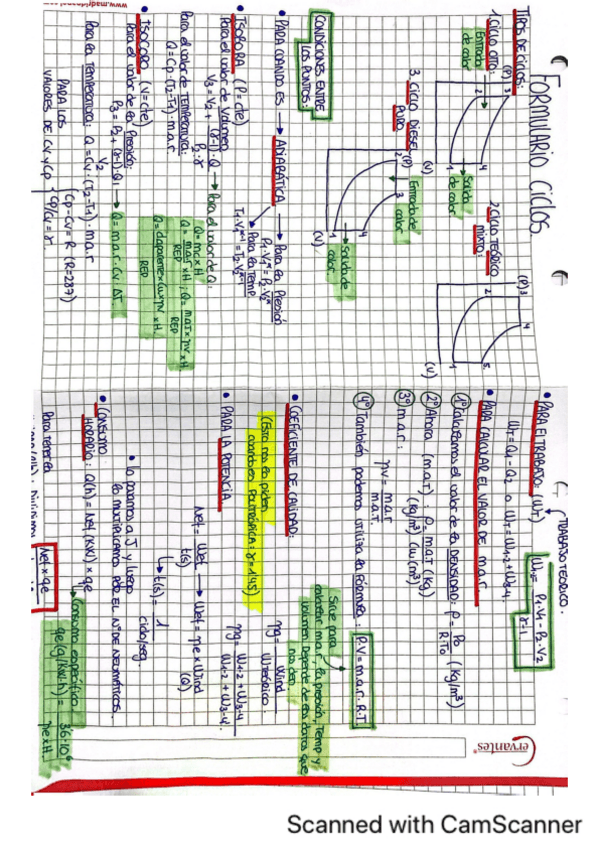 FORMULARIO CICLOS.
TIPOS DE CICLOS:
1. CICLO OTTO:
Entrada de calor
(P)
2
3
4
1
Salida de calor
(V)
2. CICLO TEÓRICO MIXTO:
(P)
3
2
4
5
1
(V)
3. CICLO DIESEL PURO
(P)
2
3
Entrada de calor
4
1
Salida de calor
(V)
CONDICIONES ENTRE LOS PUNTOS:
• PARA CUANDO ES → ADIABÁTICA → Para la Presión
P1·V1^γ = P2·V2^γ
→ Para la Temp
T1·V1^γ-1 = T2·V2^γ-1
• ISOBORA (P=cte)
Para el valor de Volumen
V3 = V2 + (γ-1)·Q / P2·γ → Para el valor de Q:
Para el valor de TEMPERATURA:
Q = Cp·(T2-T1)·m.a.r.
Q = mc × H
• ISOCORO (V=cte)
Para el valor de la Presión:
P3 = P2 + (γ-1)·Q1 / V2 → Q = m.a.r. · Cv · ΔT.
Para la TEMPERATURA: Q = Cv·(T2-T1)·m.a.r
PARA LOS VALORES DE CV y CP
Cp-Cv = R (R=287)
Cp/Cv = γ.
• PARA EL TRABAJO: (WT)
TRABAJO TEÓRICO.
WT = Q1 - Q2 o WT = W1-2 + W3-4.
P1·V1 - P2·V2 / γ-1
• PARA CALCULAR EL VALOR DE m.a.r.
1º Calculamos el valor de la DENSIDAD: ρ = P0 / R·T0 (kg/m³)
2º Ahora (m.a.T): ρ = m.a.T (kg) / (kg/m³) Cu (m³)
3º m.a.r.:
ηv = m.a.r / m.a.T.
4º También podemos utilizar la Fórmula: P·V = m.a.r. · R.T
Sirve para calcular m.a.r, la presión, Temp y volumen Depende de los datos que nos den.
• COEFICIENTE DE CALIDAD:
ηg = Wind / W teórico.
(Esto nos lo piden cuando es POLITRÓPICA: γ = 1'45)
ηg = W1-2 + W3-4 / W1-2 + W3-4.
• PARA LA POTENCIA
Nef = Wef / t(s) → Wef = ηe × Wind (Q)
→ t(s) = 1 / ciclo/seg
• Lo pasamos a J y luego lo multiplicamos POR EL Nº DE
• CONSUMO HORARIO: Q(h) = Nef (KW) × qe
→ Consumo específico.
qe (g/KW·h) = 36·10⁶ / ηe × H.
Para tener la
Nef × qe
Cervantes
www.madridpapel
Scanned with CamScanner